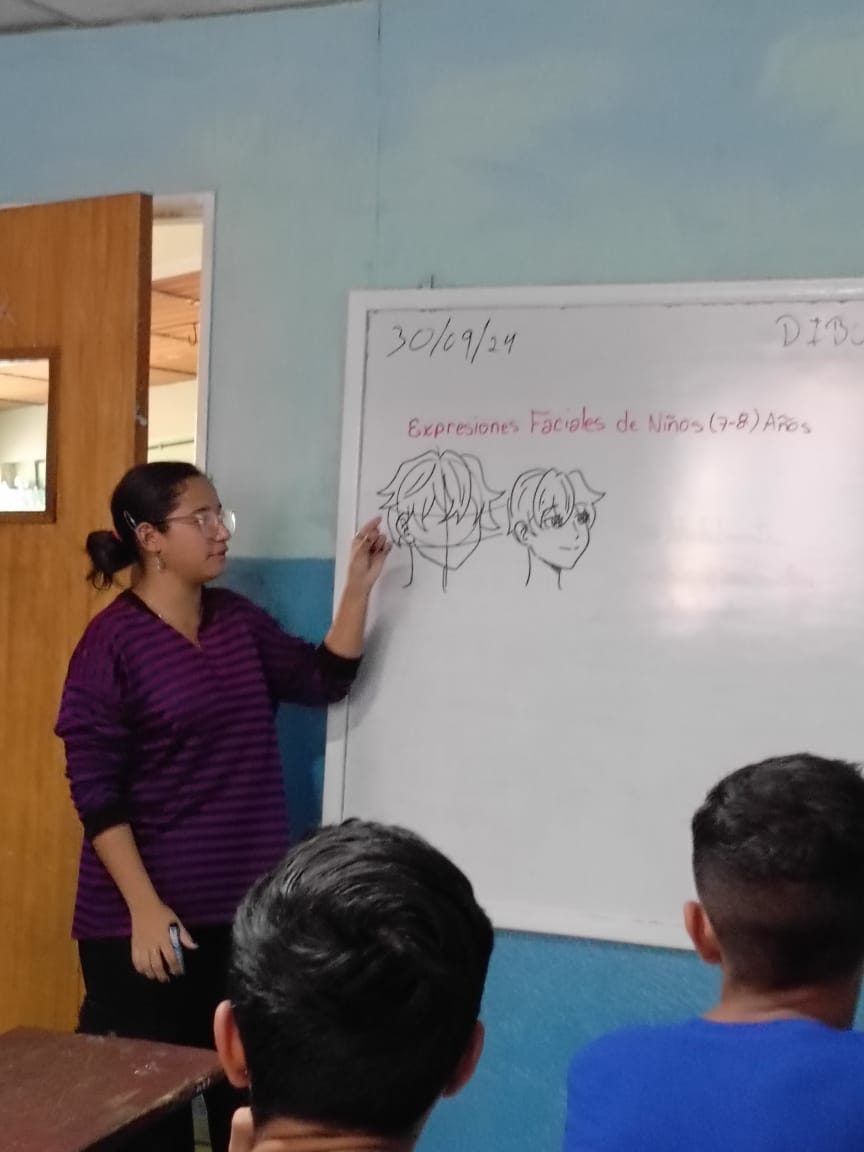 30/09/24
Expresiones Faciales de Niños (7-8) Años